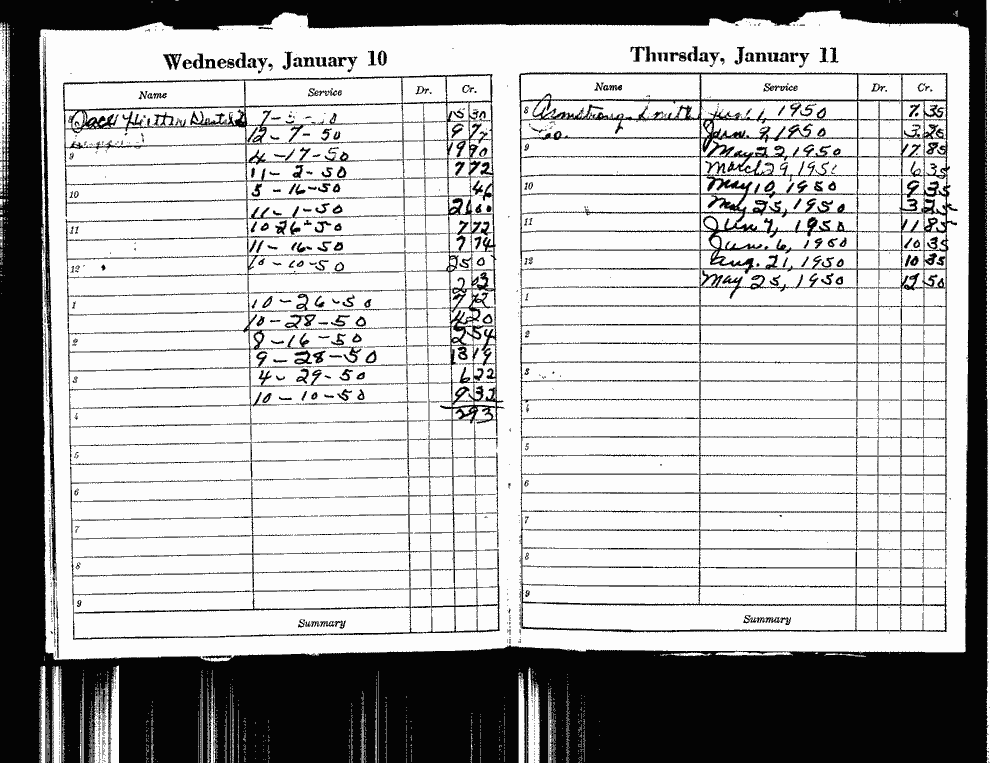 Wednesday, January 10
Name Service Dr. Cr.
8 Jack Dental 7-5- 15 50
12-7-50 9 77
9 4-17-50 19 90
11-2-50 7 72
10 5-16-50 46
11-1-50 26 00
11 10-26-50 7 72
11-16-50 7 74
12 10-10-50 2 50
2 03
1 10-26-50 7 72
10-28-50 4 20
2 8-16-50 2 54
9-28-50 13 19
3 4-29-50 6 22
10-10-50 9 32
4 2 93
5
6
7
8
9
Summary
Thursday, January 11
Name Service Dr. Cr.
8 Armstrong Smith 1, 1950 7.35
Co. Jan. 9, 1950 3.85
9 May 22, 1950 17.85
March 29, 195 6 35
10 May 10, 1950 9 35
May 25, 1950 3
11 Jun 7, 1950 11 85
Jun. 6, 1950 10 35
12 Aug. 21, 1950 10 35
May 25, 1950 12 50
1
2
3
4
5
6
7
8
9
Summary